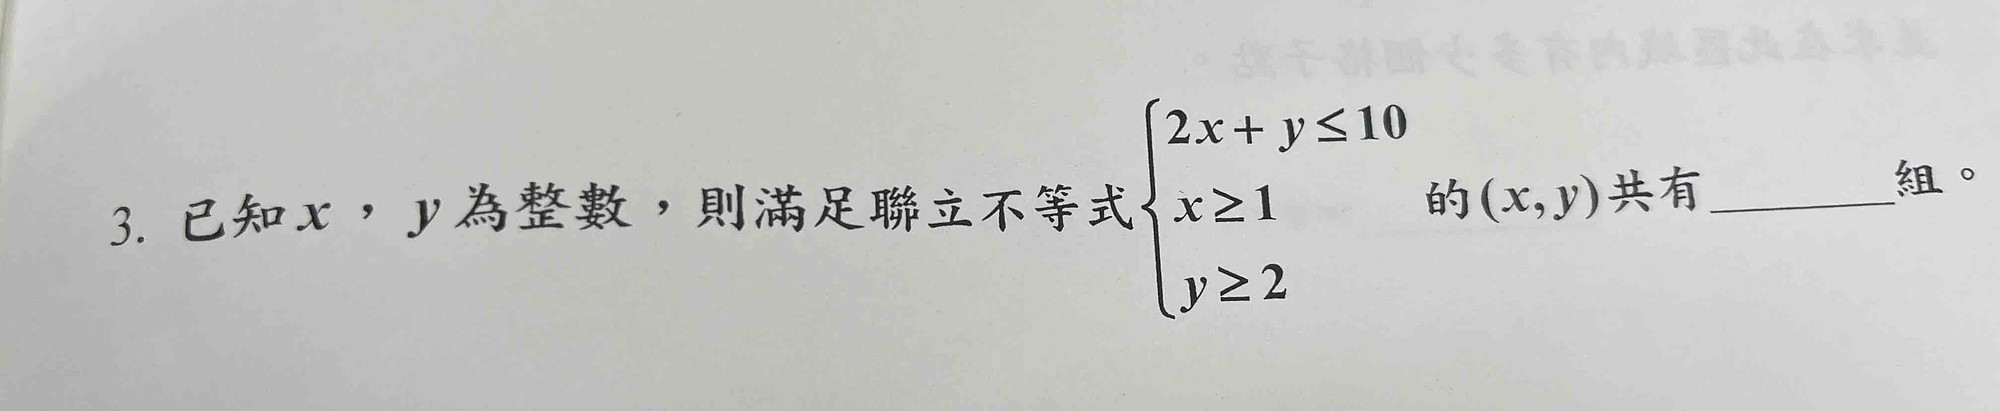 3. 已知x，y為整數，則滿足聯立不等式{2x+y≤10
x≥1
y≥2 的(x,y)共有______組。